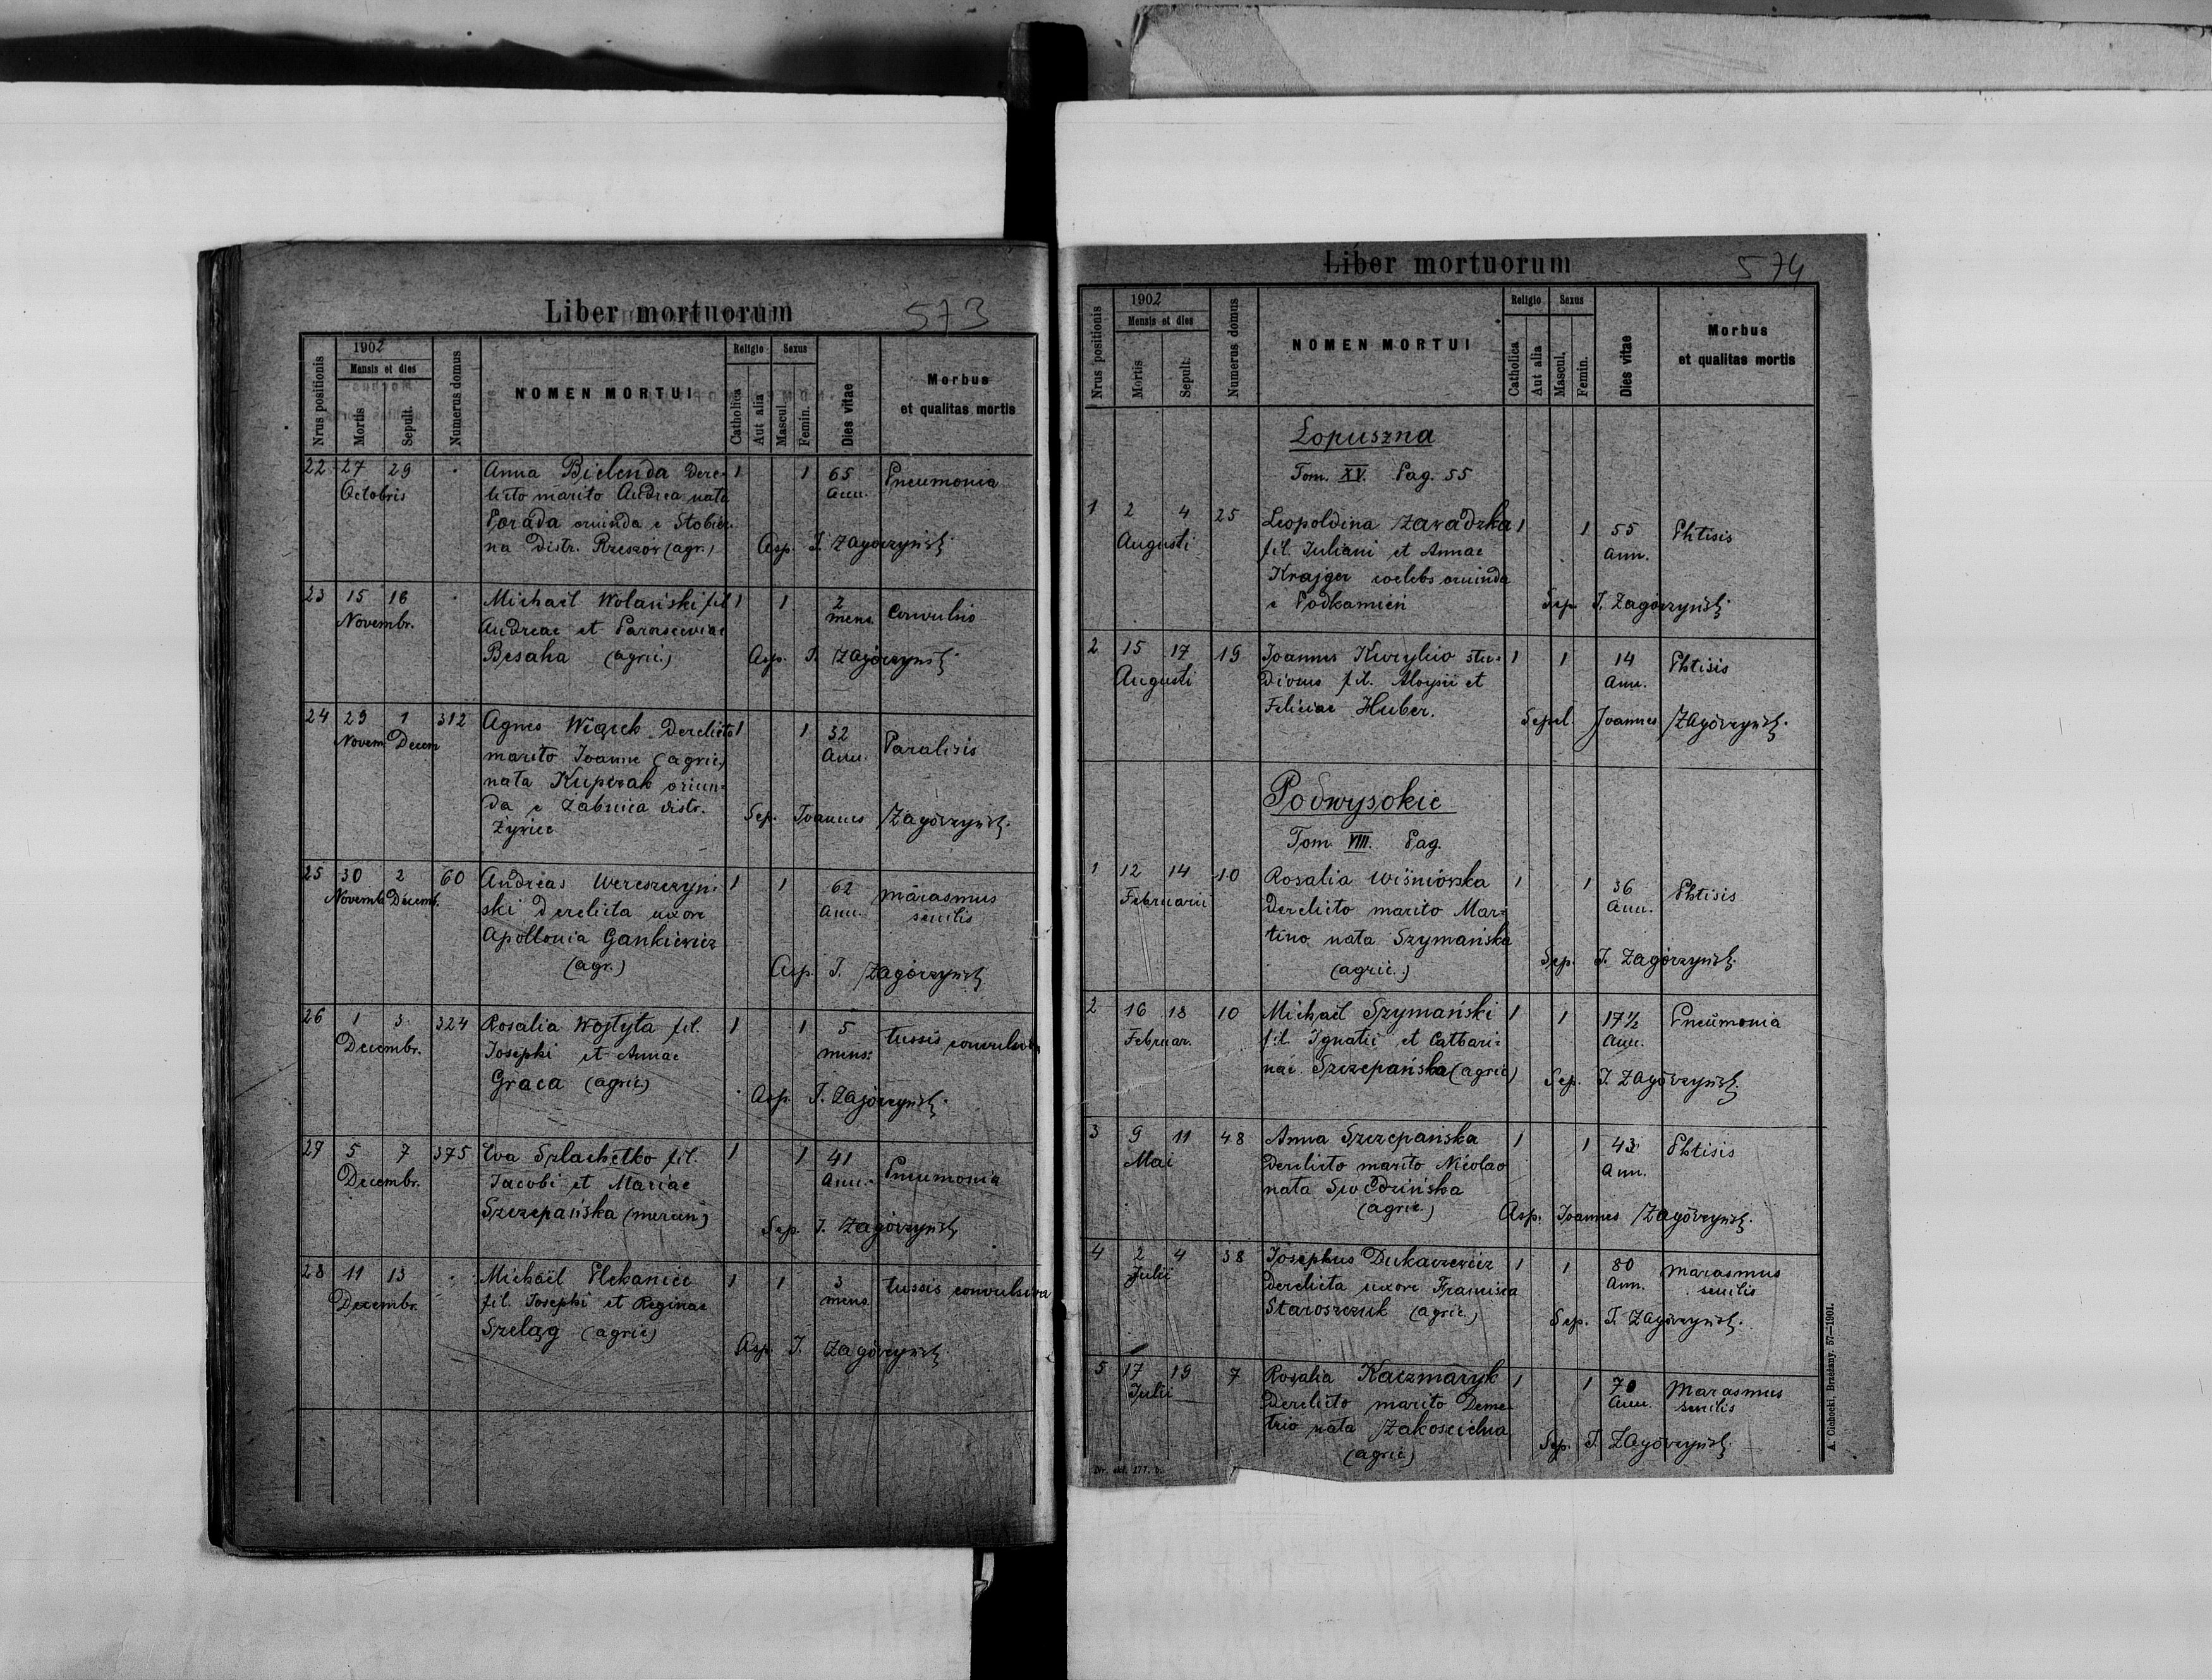 Liber mortuorum 573
Nrus positionis
1902
Mensis et dies
Mortis
Sepult.
Numerus domus
NOMEN MORTUI
Religio
Catholica
Aut alia
Sexus
Mascul.
Femin.
Dies vitae
Morbus
et qualitas mortis
22 27 29 Anna Bielenda dere- 1 1 65 Pneumonia
Octobris licto marito Andrea nata Ann.
Porada oriunda e Stobier-
na distr. Rzeszów (agr.) Asp. J. Zagórzyński
23 15 16 Michaël Wolański fil. 1 1 2 Convulsio
Novembr. Andreae et Parasceviae mens.
Besaha (agric.) Asp. J. Zagórzyński
24 29 1 312 Agnes Wiącek derelicto 1 1 32 Paralisis
Novem. Decem marito Joanne (agric.) Ann.
nata Kuperak oriun-
da e Żabnica distr. Sep. Joannes Zagórzyński
Żywiec
25 30 2 60 Andreas Wereszczyń- 1 1 62 marasmus
Novemb. Decemb. ski derelicta uxore Ann. senilis
Apollonia Gankiewicz
(agr.) Asp. J. Zagórzyński
26 1 3 324 Rosalia Wojtyła fil. 1 1 5 tussis convulsiva
Decembr. Josephi et Annae mens.
Graca (agric.) Asp. J. Zagórzyński
27 5 7 375 Eva Szlachetko fil. 1 1 41 Pneumonia
Decembr. Jacobi et Mariae Ann.
Szczepańska (mercen.) Sep. J. Zagórzyński
28 11 13 Michaël Plekaniec 1 1 3 tussis convulsiva
Decembr. fil. Josephi et Reginae mens.
Szeląg (agric.) Asp. J. Zagórzyński
Liber mortuorum 574
Nrus positionis
1902
Mensis et dies
Mortis
Sepult.
Numerus domus
NOMEN MORTUI
Religio
Catholica
Aut alia
Sexus
Mascul.
Femin.
Dies vitae
Morbus
et qualitas mortis
Łopuszna
Tom. XV. Pag. 55
1 2 4 25 Leopoldina Zawadzka 1 1 55 Phtisis
Augusti fil. Juliani et Annae Ann.
Krajger coelebs oriunda
e Podkamień Sep. J. Zagórzyński
2 15 17 19 Joannes Kuryłło stu- 1 1 14 Phtisis
Augusti diosus fil. Aloysii et Ann.
Feliciae Huber. Sepel. Joannes Zagórzyński
Podwysokie
Tom. VIII. Pag.
1 12 14 10 Rosalia Wiśniowska 1 1 36 Phtisis
Februarii derelicto marito Mar- Ann.
tino nata Szymańska
(agric.) Sep. J. Zagórzyński
2 16 18 10 Michaël Szymański 1 1 17½ Pneumonia
Februar. fil. Ignatii et Cathari- Ann.
nae Szczepańska (agric.) Sep. J. Zagórzyński
3 9 11 48 Anna Szczepańska 1 1 43 Phtisis
Mai derelicto marito Nicolao Ann.
nata
(agric.) Asp. Joannes Zagórzyński
4 2 4 38 Josephus Dukaczewicz 1 1 80 marasmus
Julii derelicta uxore Francisca Ann. senilis
Staroszczuk (agric.) Sep. J. Zagórzyński
5 17 19 7 Rosalia Kaczmaryk 1 1 70 Marasmus
Julii derelicto marito Deme- Ann. senilis
trio nata Zakościelna
(agric.) Sep. J. Zagórzyński
A. Cichocki, Brzeżany. 57—1901.